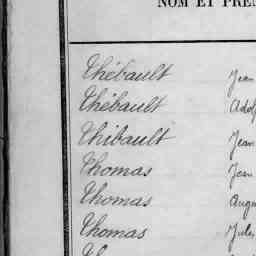 NOM ET PRÉN
Thébault Jean
Thébault Adolp
Thibault Jean
Thomas Jean
Thomas Augu
Thomas Jules